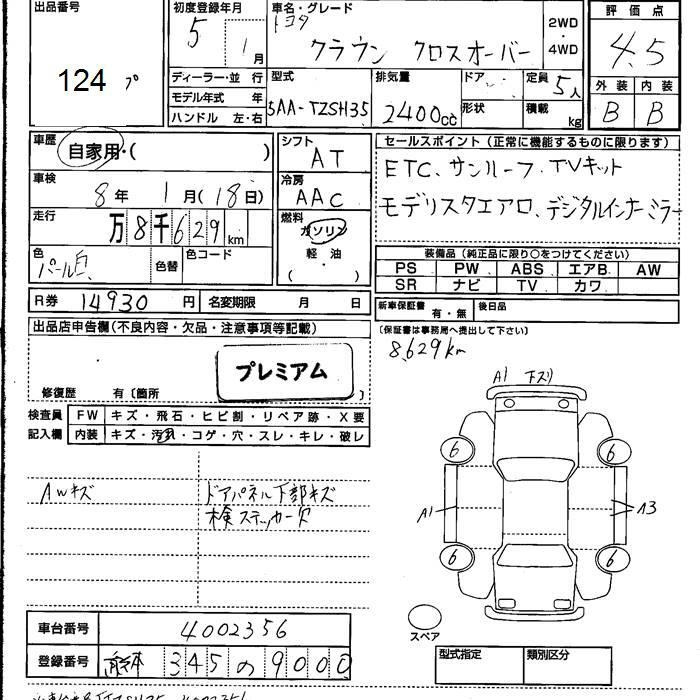 出品番号
124 プ
初度登録年月
5 1月
車名・グレード
トヨタ
クラウン クロスオーバー
2WD
・
4WD
評価点
4.5
外装 内装
B B
ディーラー・並行
モデル年式 年
ハンドル 左・右
型式
5AA-TZSH35
排気量
2400cc
ドア
形状
定員
5人
積載
kg
車歴
自家用・( )
車検
8年 1月(18日)
走行
万8千629km
色
パール白
色替
色コード
シフト
AT
冷房
AAC
燃料
ガソリン
軽油
( ・ )
セールスポイント(正常に機能するものに限ります)
ETC、サンルーフ、TVキット
モデリスタエアロ、デジタルインナーミラー
装備品(純正品に限り○をつけてください)
PS PW ABS エアB. AW
SR ナビ TV カワ
R券 14930 円 名変期限 月 日
新車保証書 有・無 後日品
(保証書は事務局へ提出して下さい)
8,629km
出品店申告欄(不良内容・欠品・注意事項等記載)
プレミアム
修復歴 有〔箇所 〕
検査員
記入欄
FW キズ・飛石・ヒビ割・リペア跡・X要
内装 キズ・汚れ・コゲ・穴・スレ・キレ・破レ
AWキズ
ドアパネル下部キズ
検ステッカー欠
A1 下スリ
6 6
A1 A3
6 6
スペア
車台番号 4002356
登録番号 345 の 9000
型式指定 類別区分